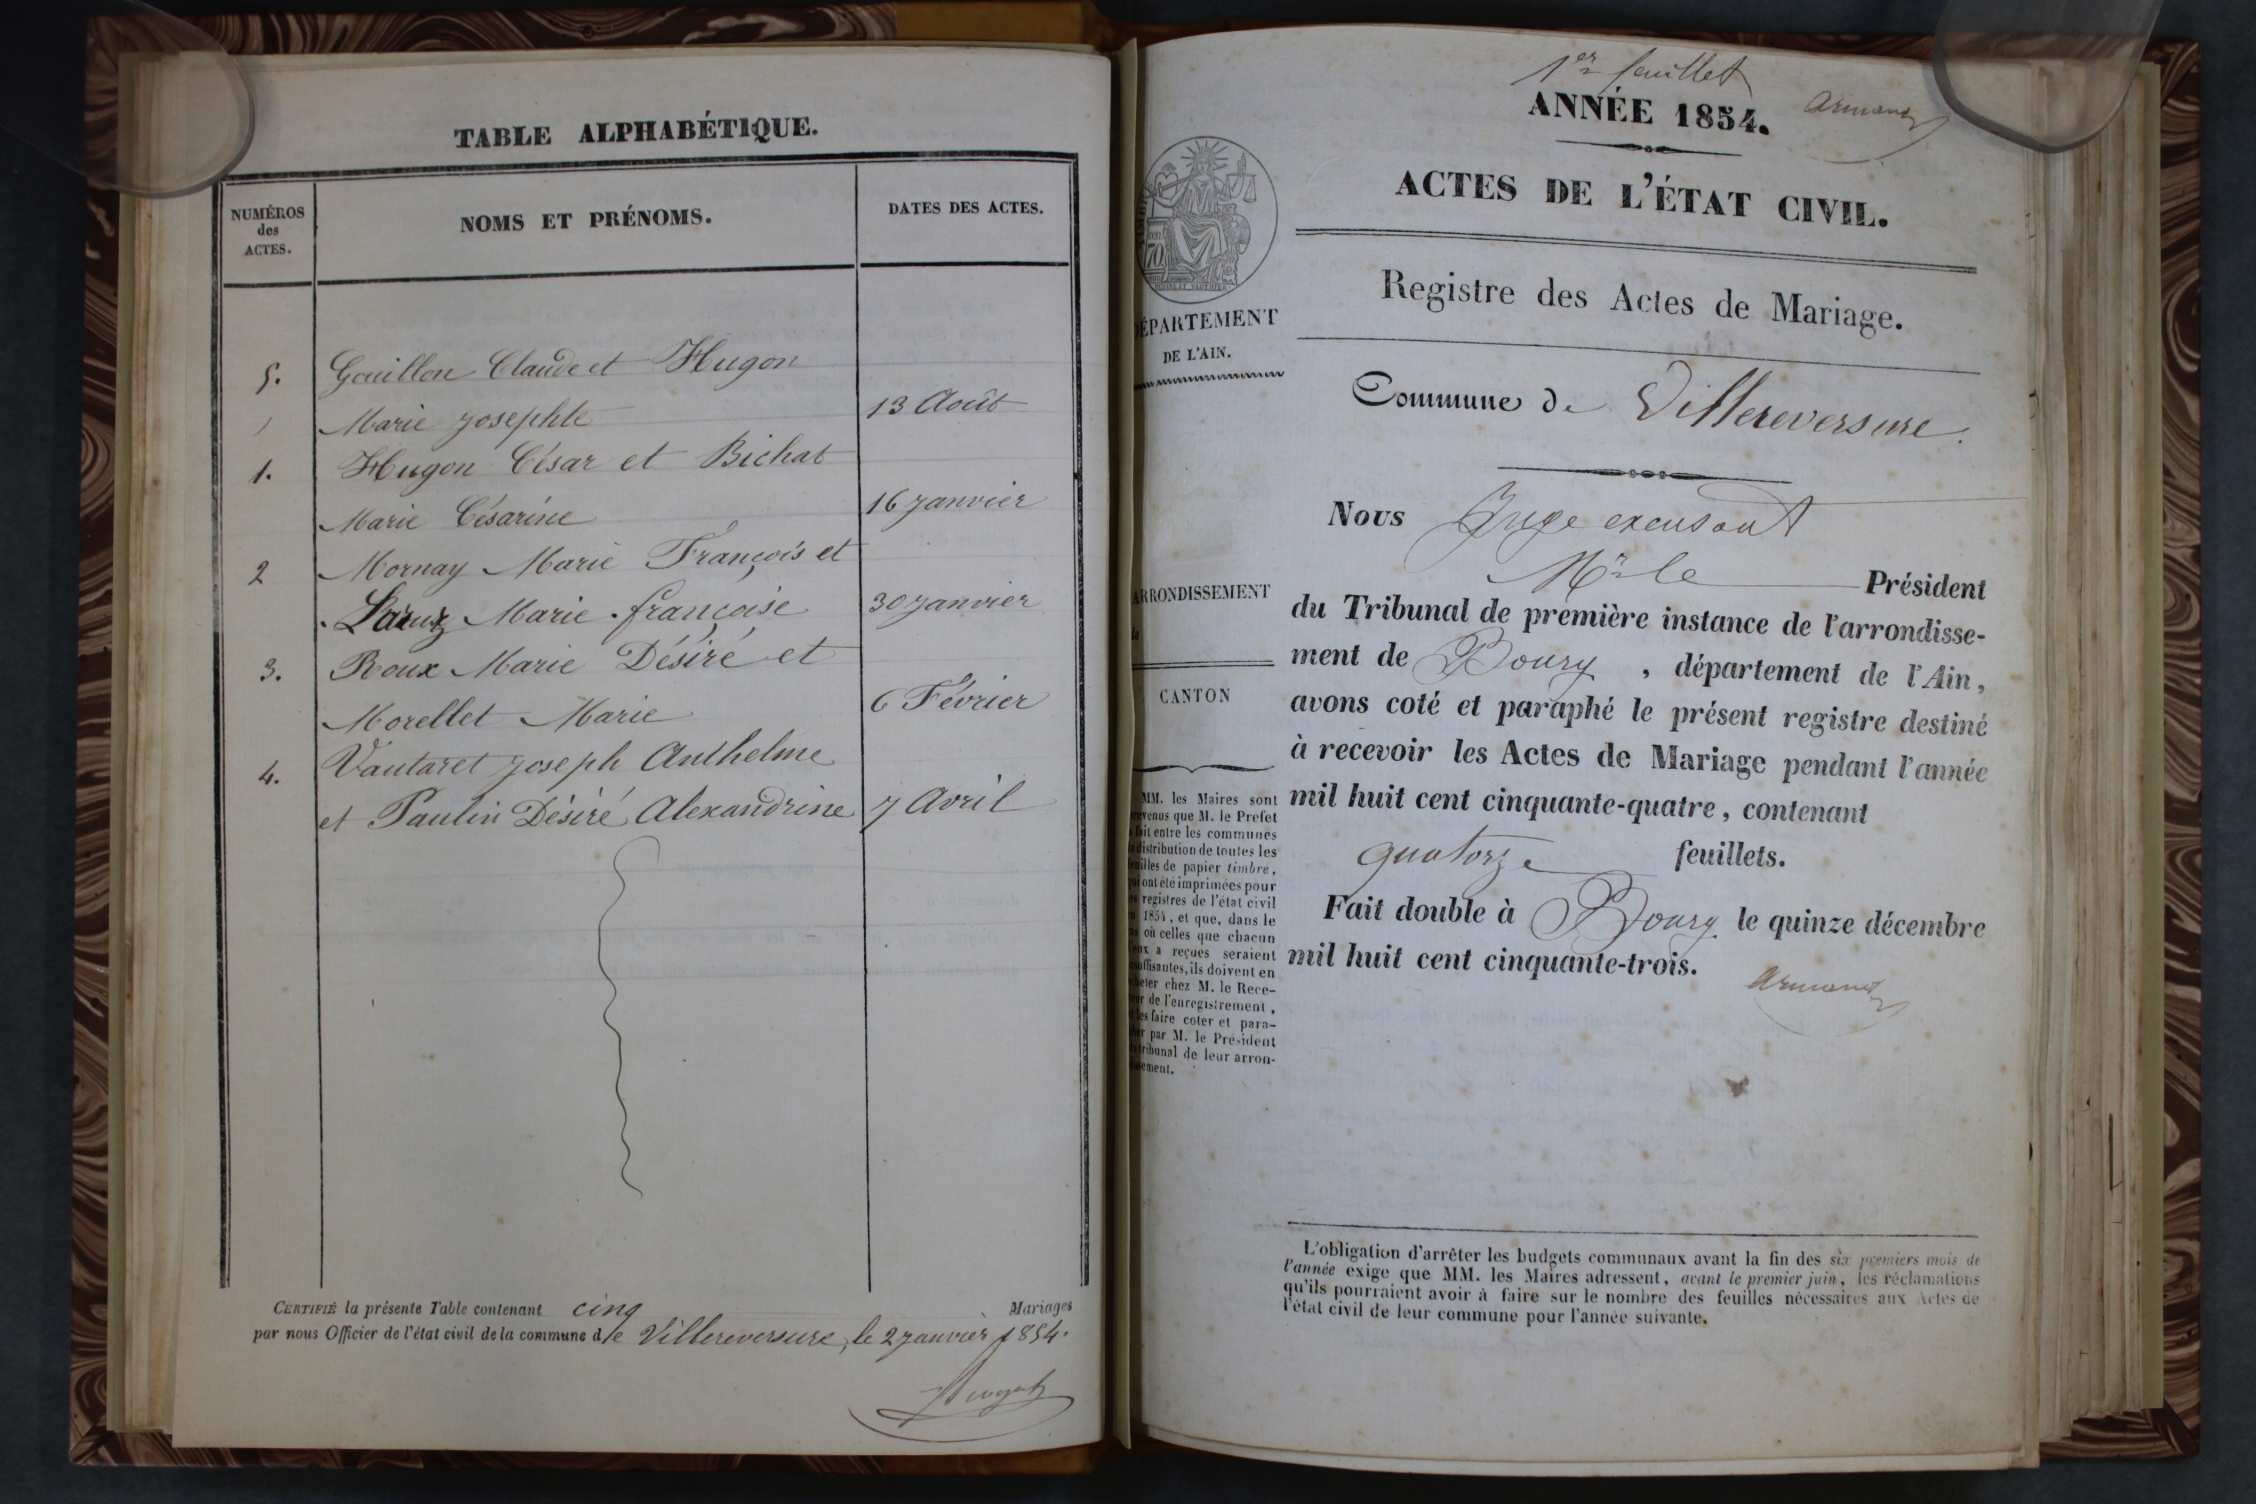 TABLE ALPHABÉTIQUE.
NUMÉROS
des
ACTES.
NOMS ET PRÉNOMS.
DATES DES ACTES.
5. Gouillon Claude et Hugon
Marie Josephte 13 Août
1. Hugon César et Bichat
Marie Césarine 16 Janvier
2 Mornay Marie François et
Marie françoise 30 Janvier
3. Roux Marie Désiré et
Morellet Marie 6 Février
4. Vautaret Joseph Anthelme
et Paulin Désiré Alexandrine 7 Avril
CERTIFIÉ la présente Table contenant cinq Mariages
par nous Officier de l'état civil de la commune de Villereversure, le 2 Janvier 1854.
1er feuillet
ANNÉE 1854.
Armand
ACTES DE L'ÉTAT CIVIL.
Registre des Actes de Mariage.
DÉPARTEMENT
DE L'AIN.
Commune de Villereversure.
ARRONDISSEMENT
CANTON
MM. les Maires sont
prévenus que M. le Prefet
a fait entre les communes
la distribution de toutes les
feuilles de papier timbré,
qui ont été imprimées pour
les registres de l'état civil
en 1854, et que, dans le
cas où celles que chacun
d'eux a reçues seraient
insuffisantes, ils doivent en
acheter chez M. le Rece-
veur de l'enregistrement,
et les faire coter et para-
pher par M. le Président
du tribunal de leur arron-
dissement.
Nous Juge excusant
Mr le Président
du Tribunal de première instance de l'arrondisse-
ment de Bourg, département de l'Ain,
avons coté et paraphé le présent registre destiné
à recevoir les Actes de Mariage pendant l'année
mil huit cent cinquante-quatre, contenant
quatorze feuillets.
Fait double à Bourg le quinze décembre
mil huit cent cinquante-trois.
Armand
L'obligation d'arrêter les budgets communaux avant la fin des six premiers mois de
l'année exige que MM. les Maires adressent, avant le premier juin, les réclamations
qu'ils pourraient avoir à faire sur le nombre des feuilles nécessaires aux Actes de
l'état civil de leur commune pour l'année suivante.